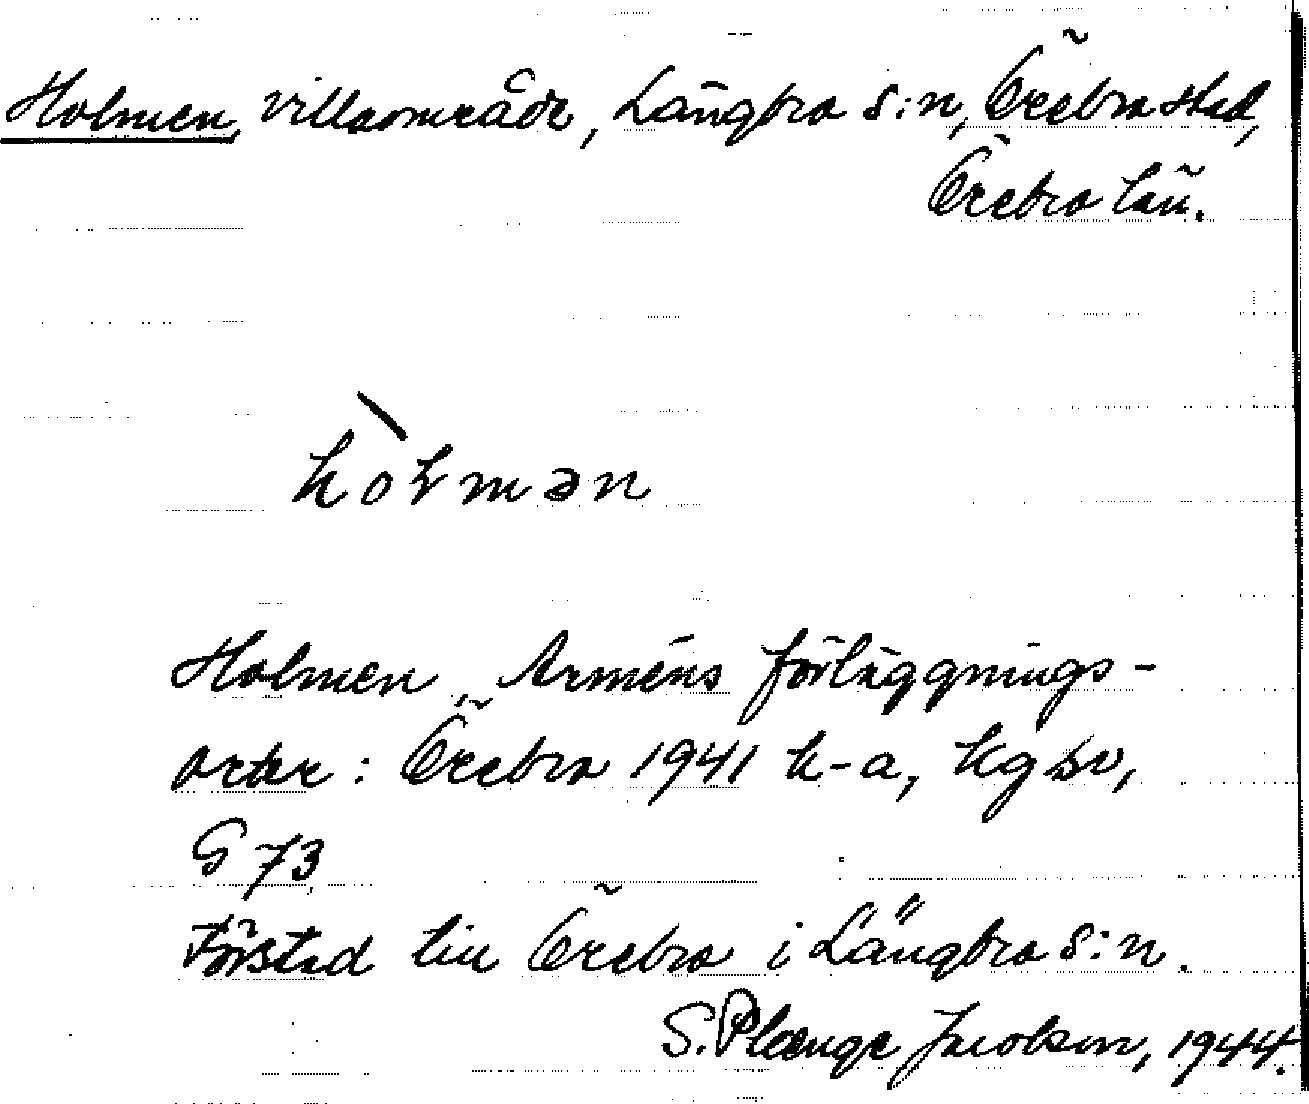 Holmen, villaområde, Längbro s:n, Örebro stad,
Örebro län.
hòlmən
Holmen, Arméns förläggnings-
orter: Örebro 1941 h-a, Kgsv,
G 73
Förstad till Örebro i Längbro s:n.
S. Plænge Jacobson, 1944.